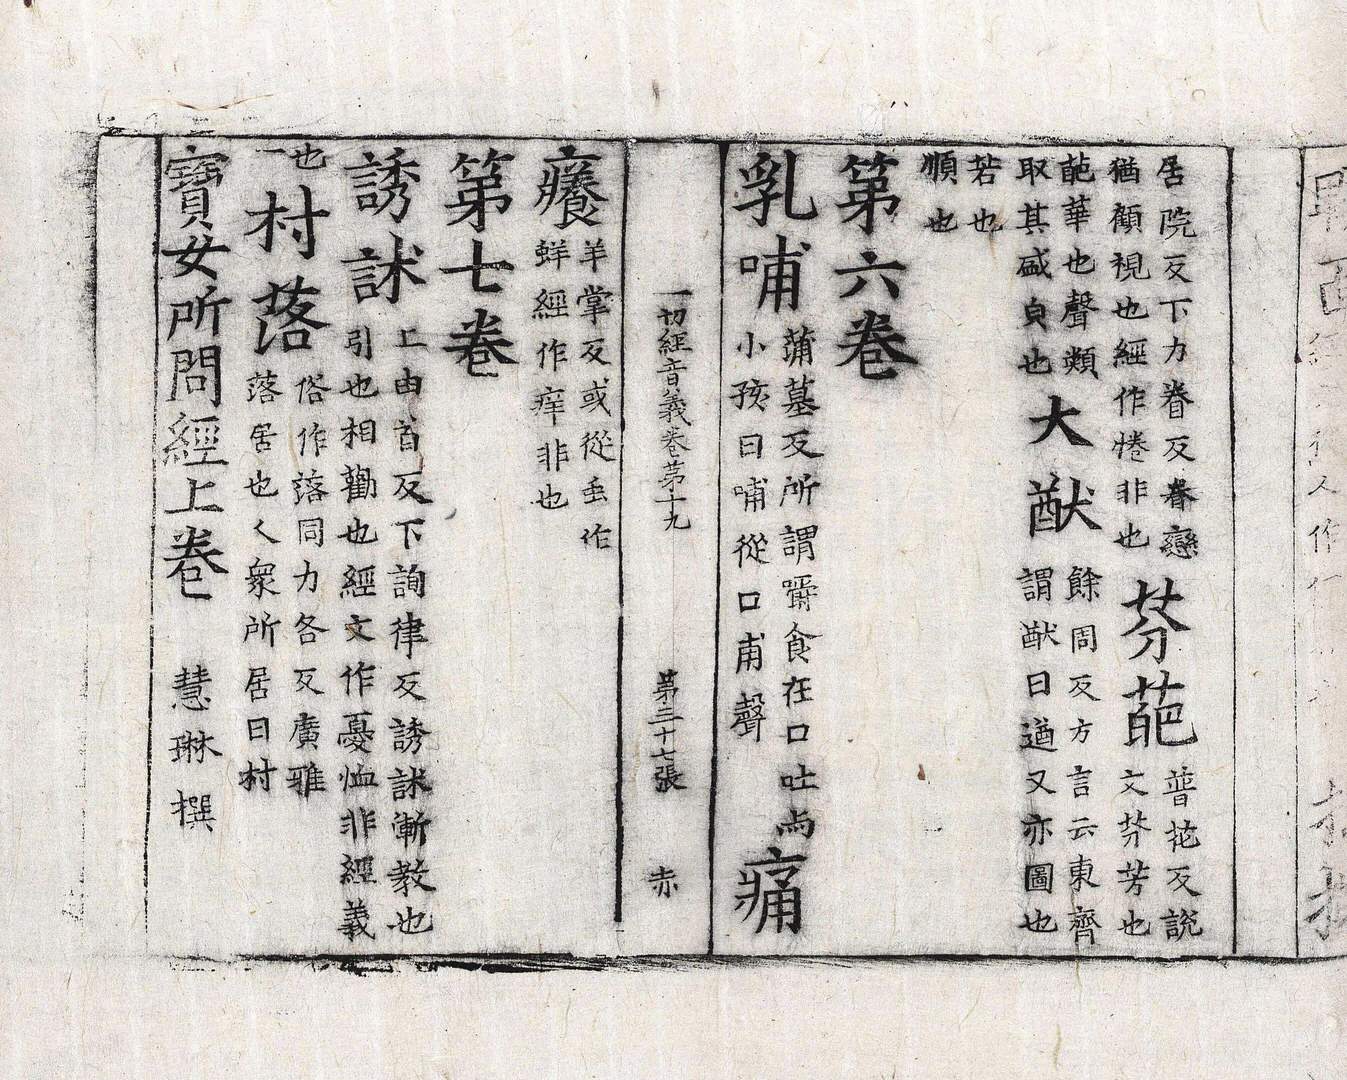 居院反下力眷反眷戀
猶顧視也經作惓非也
芬葩
普花反說
文芬芳也
葩華也聲類
取其盛皃也
大猷
餘周反方言云東齊
謂猷曰道又亦圖也
若也
順也
第六卷
乳哺
蒲墓反所謂嚼食在口吐与
小孩曰哺從口甫聲
痛
一切經音義卷第十九
第三十七張
赤
癢
羊掌反或從虫作
蛘經作痒非也
第七卷
誘訹
上由首反下詢律反誘訹漸教也
引也相勸也經文作憂恤非經義
也
一
村落
俗作落同力各反廣雅
落居也人衆所居曰村
寶女所問經上卷
慧琳撰